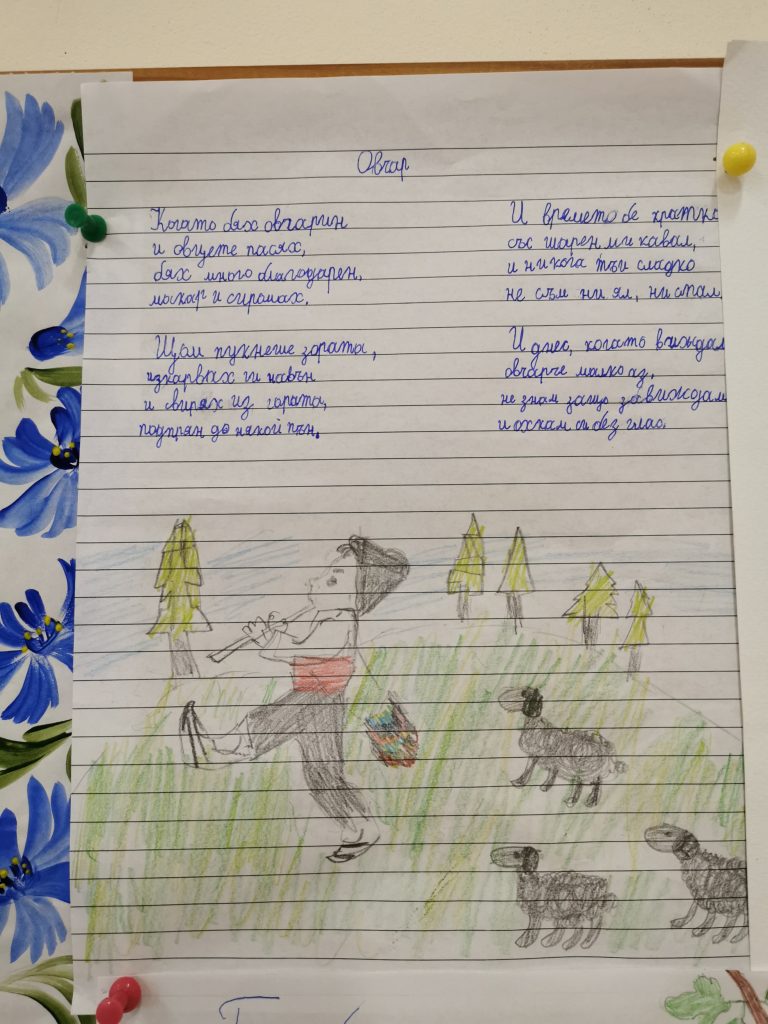 Овчар
Когато бях овчарин
и овцете пасях,
бях много благодарен,
макар и сиромах.
Щом пукнеше зората,
изкарвах ги навън
и свирях из гората,
подпрян до някой пън.
И времето бе кратко
със шарен ми кавал,
и никога тъй сладко
не съм ни ял, ни спал.
И днес, когато виждам
овчарче малко аз,
не знам защо завиждам
и охкам си без глас.